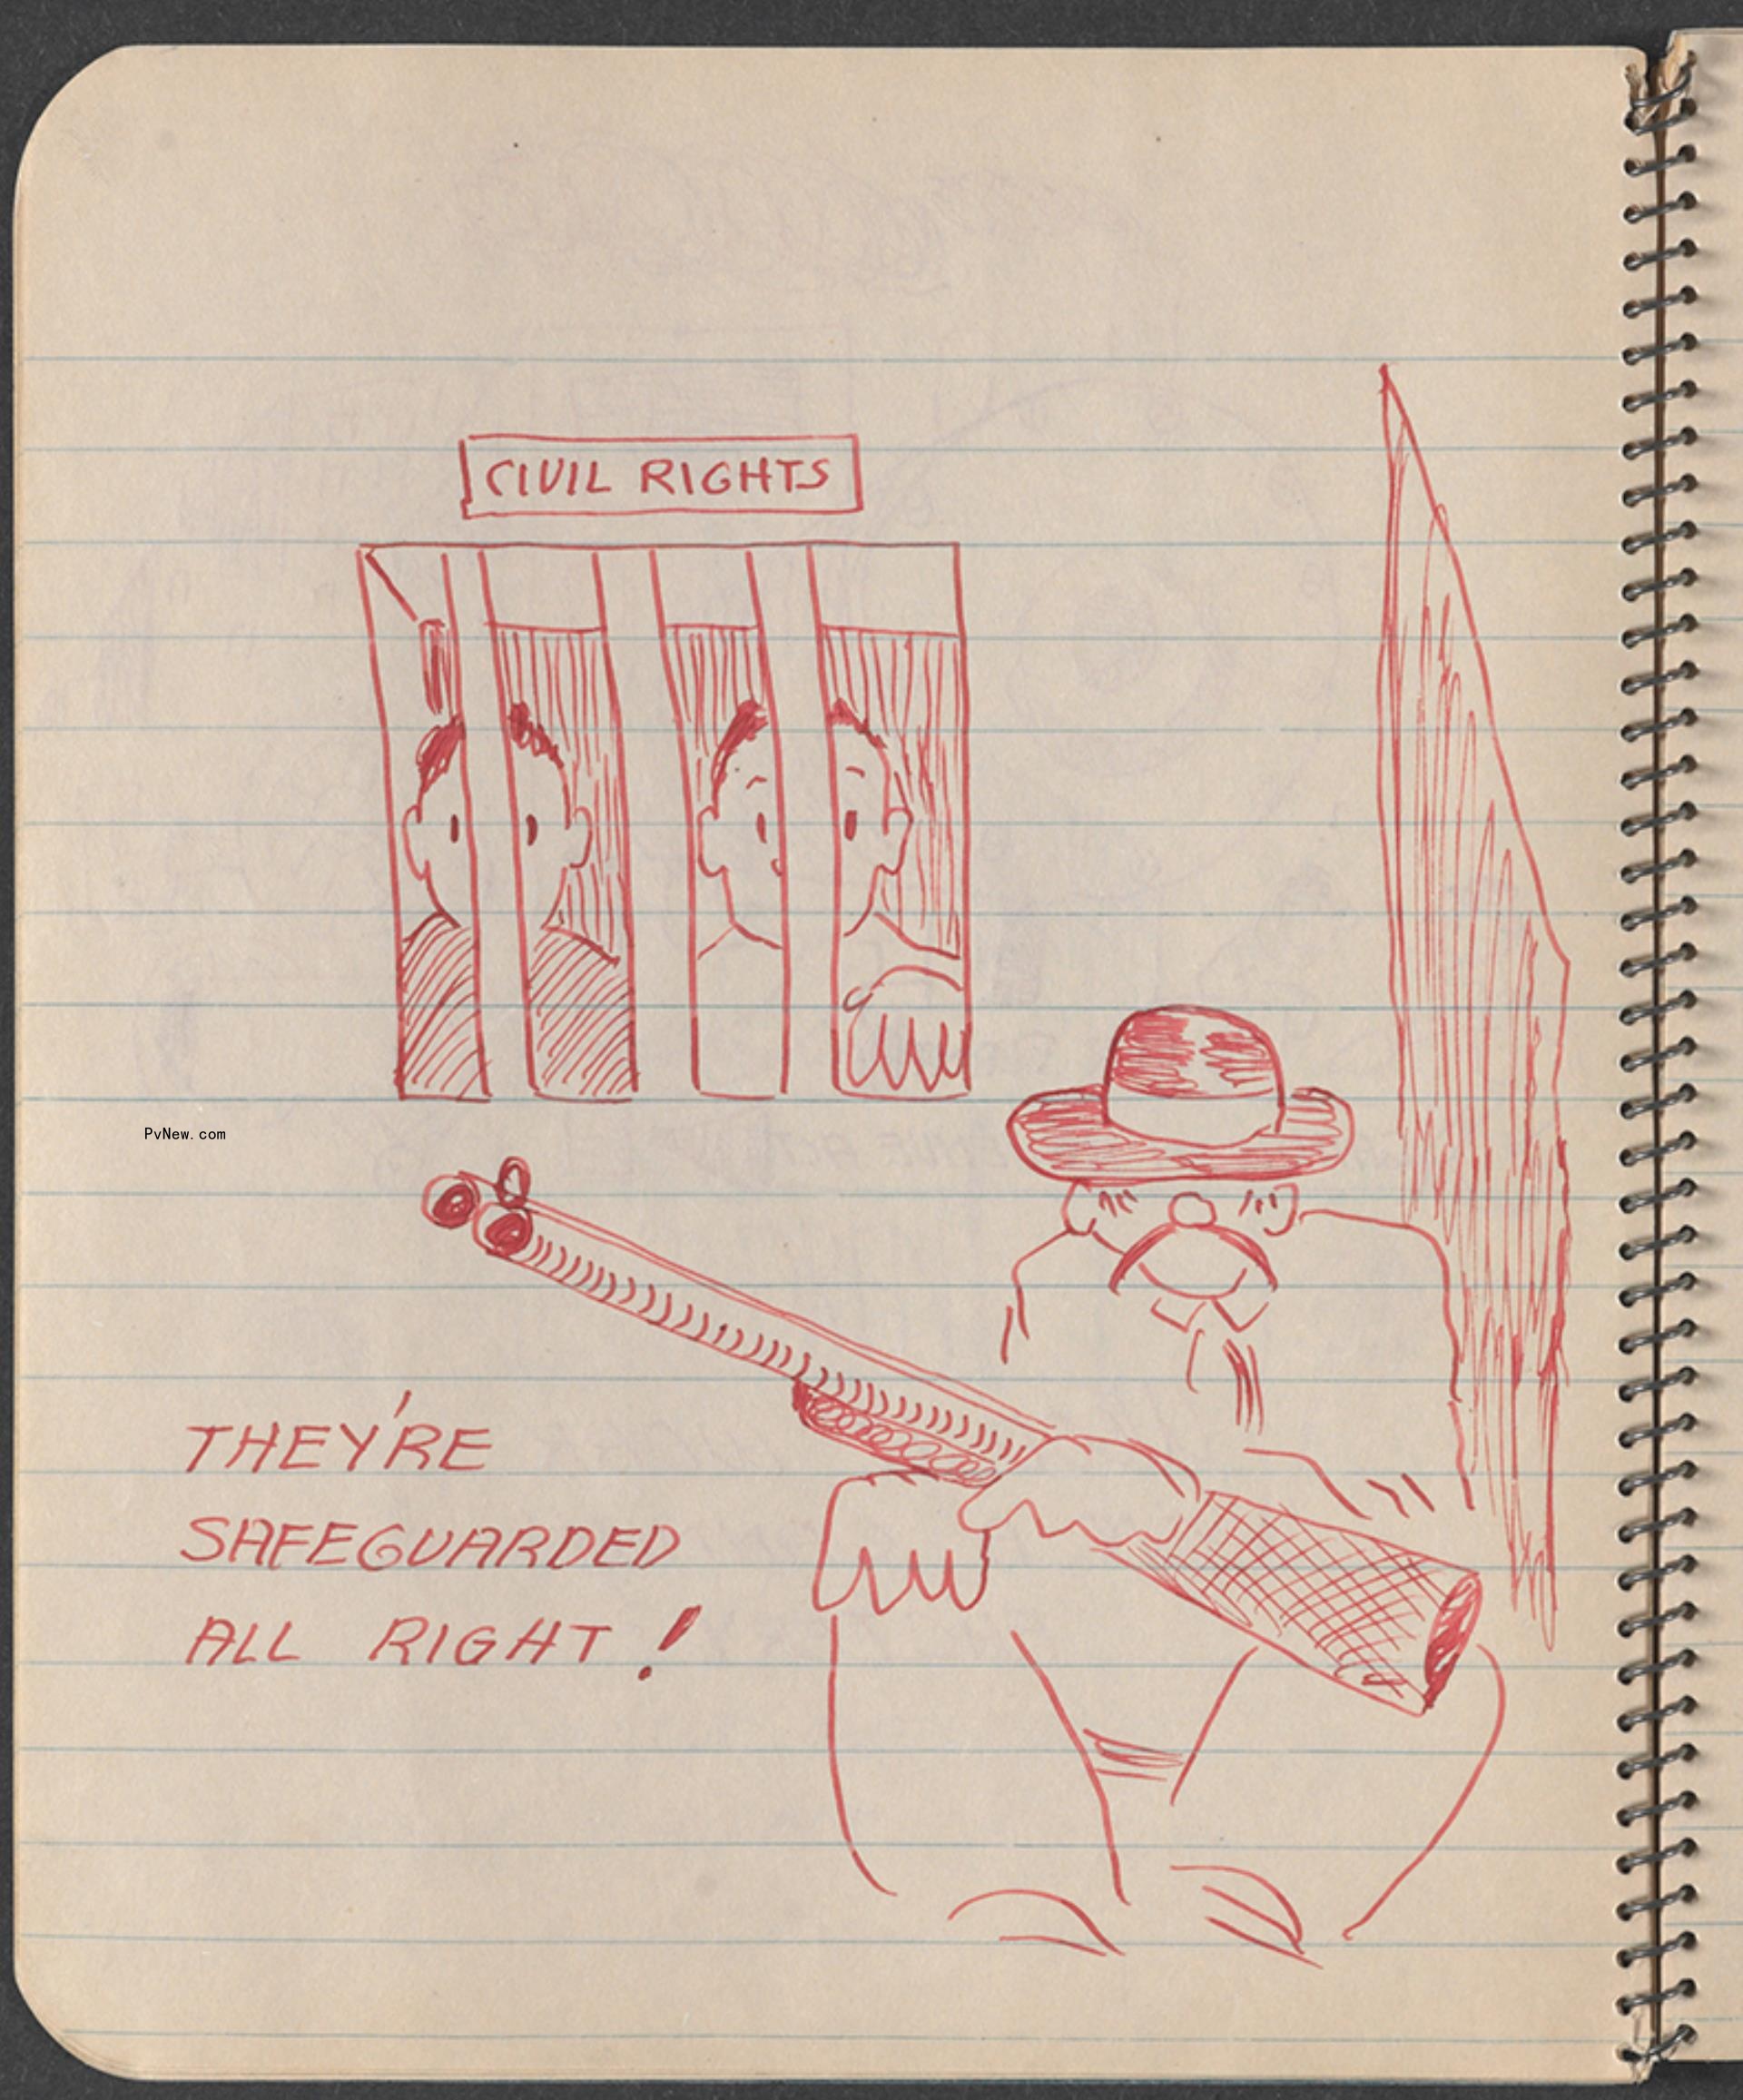 CIVIL RIGHTS
PvNew.com
THEY'RE
SAFEGUARDED
ALL RIGHT!